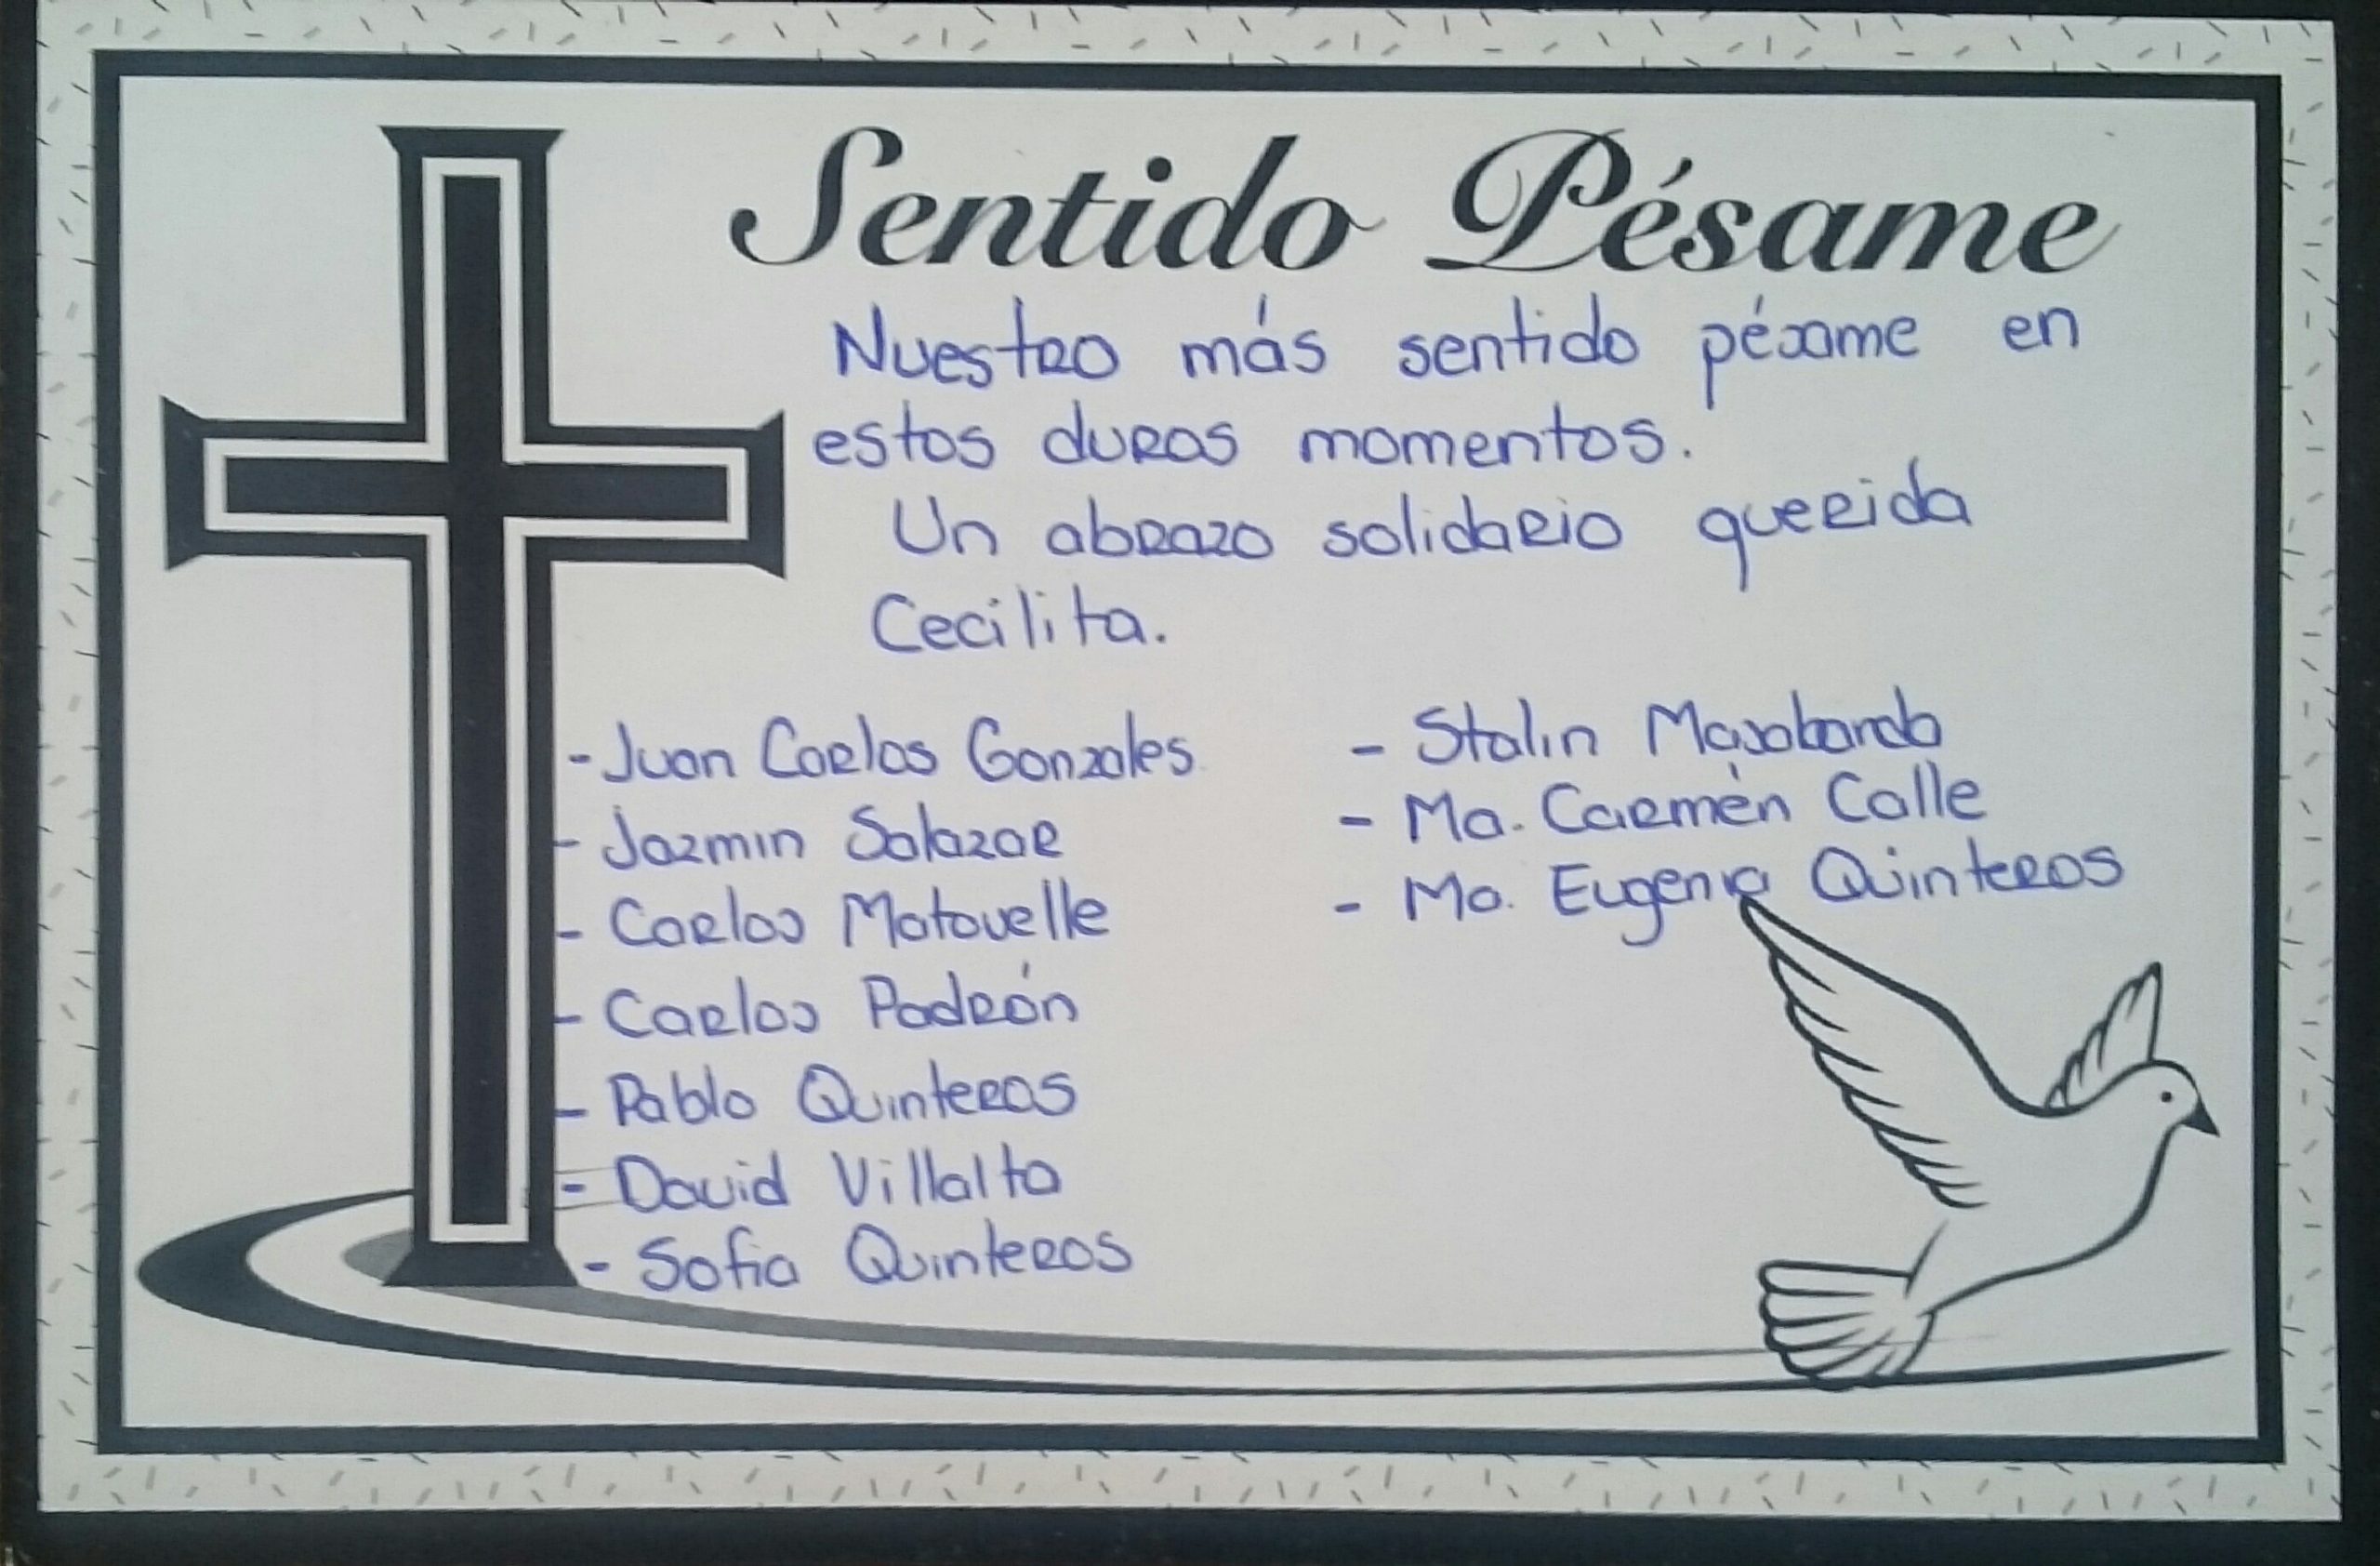 Sentido Pésame
Nuestro más sentido pésame en
estos duros momentos.
Un abrazo solidario querida
Cecilita.
- Juan Carlos Gonzales
- Jazmin Salazar
- Carlos Matovelle
- Carlos Padrón
- Pablo Quinteros
- David Villalta
- Sofia Quinteros
- Stalin Masabanda
- Ma. Carmén Calle
- Ma. Eugenia Quinteros